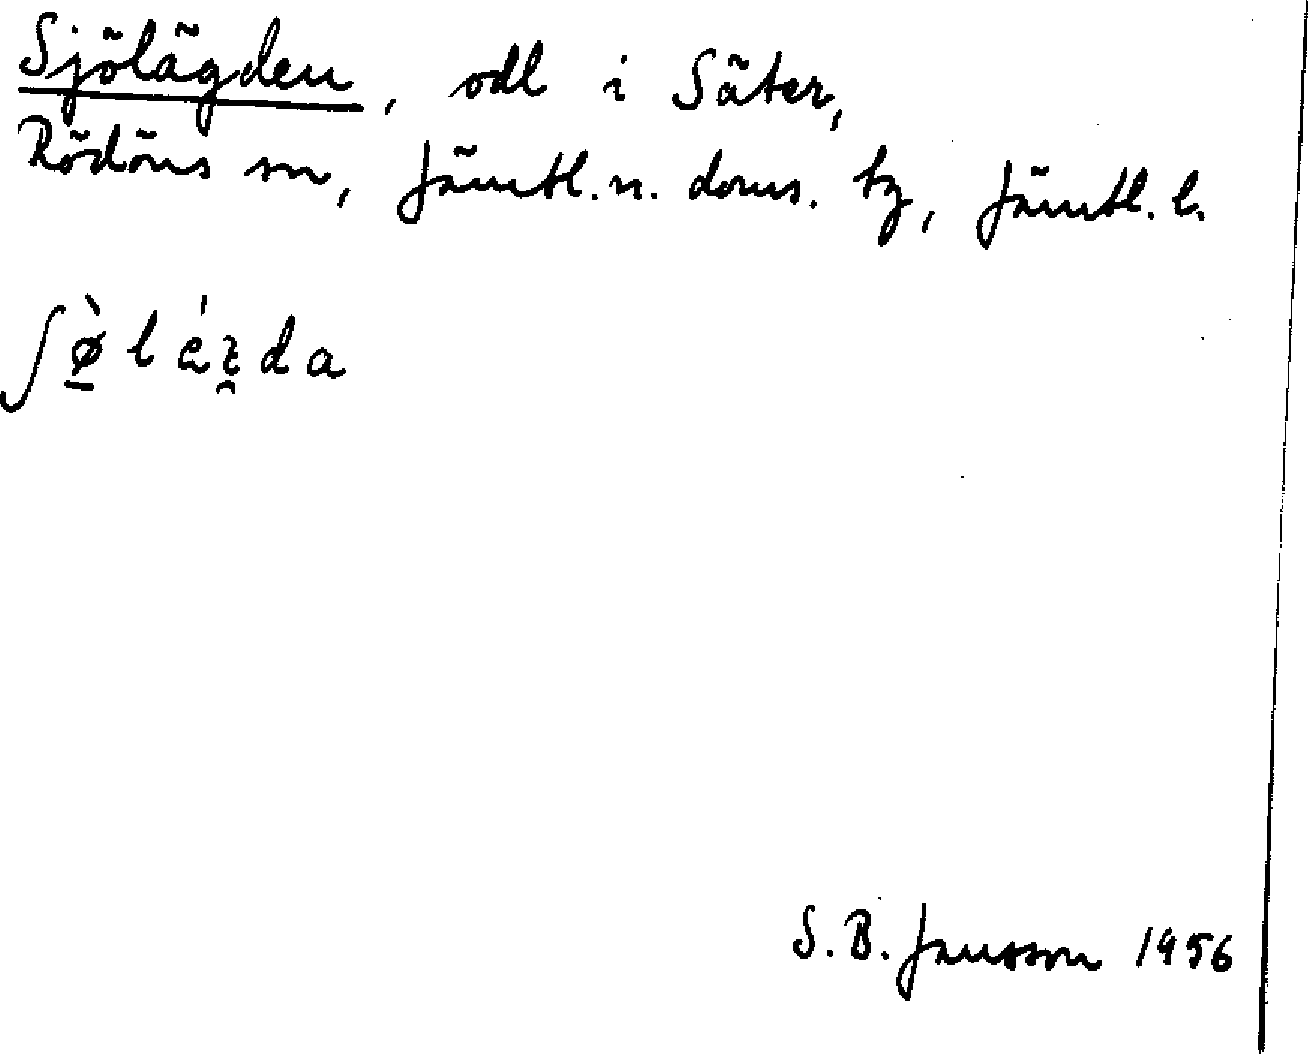 Sjölägden, odl i Säter,
Rödöns sn, Jämtl. n. doms. tg, Jämtl. l.
ʃø̱̀lézda
S. B. Jansson 1956